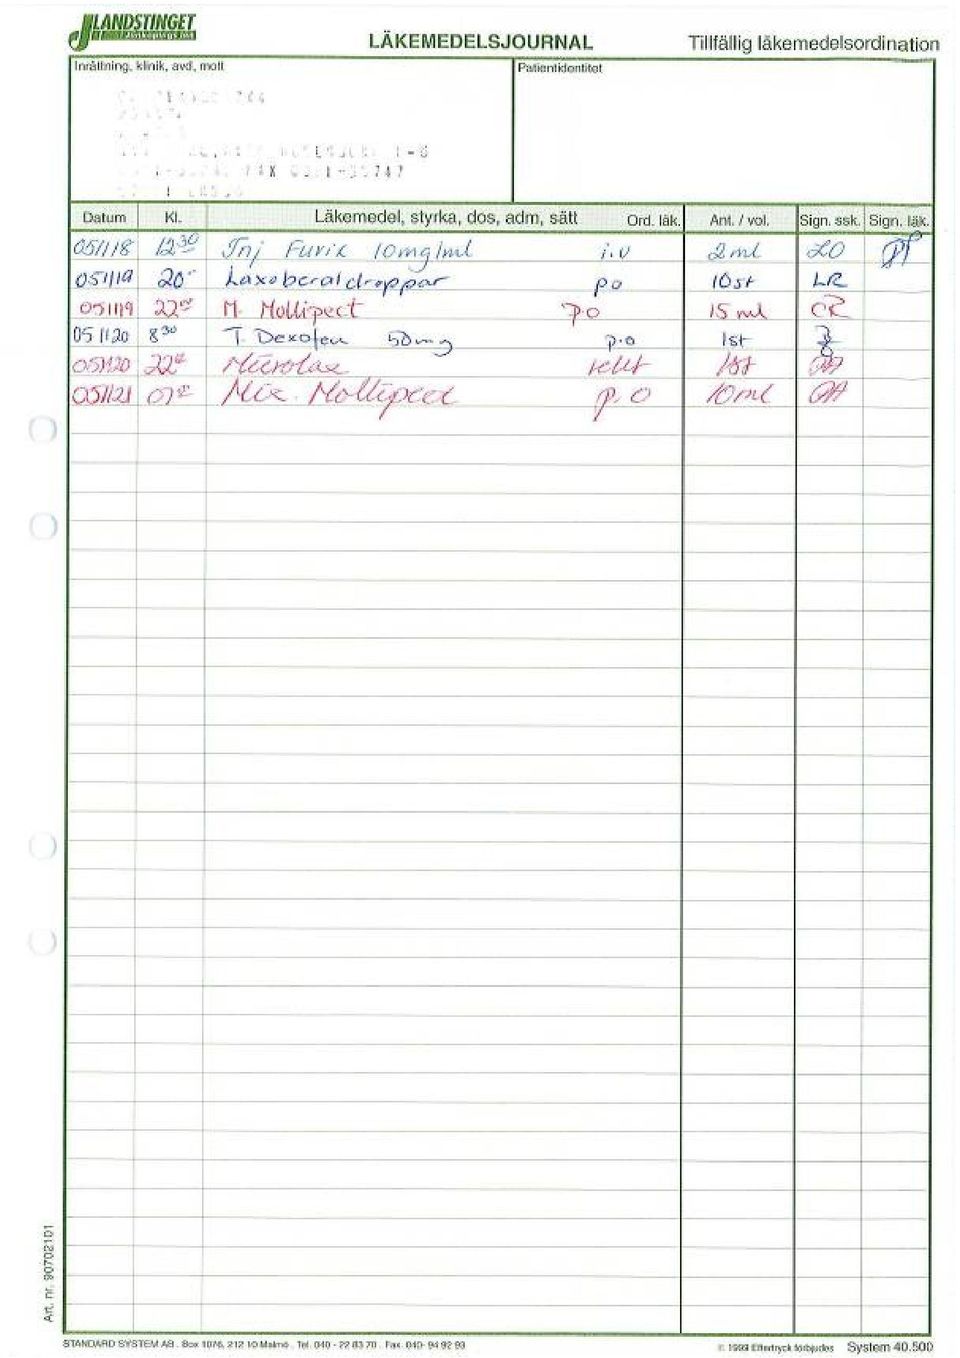 LANDSTINGET
LÄKEMEDELSJOURNAL Tillfällig läkemedelsordination
Inrättning, klinik, avd, mott Patientidentitet
Datum Kl. Läkemedel, styrka, dos, adm, sätt Ord. läk. Ant. / vol. Sign. ssk. Sign. läk.
051118 12 30 Inj Furix 10mg/ml i.v 2 ml LO
051119 20 Laxoberal droppar po 10 st LR
051119 22 M. Mollipect po 15 ml CR
051120 8 30 T. Dexofen 50mg p.o 1st
051120 22 Microlax rekt 1st
051121 07 Mix. Mollipect p.o 10ml
Art. nr. 90702101
STANDARD SYSTEM AB. Box 1076, 212 10 Malmö. Tel. 040 - 22 83 70. Fax. 040- 94 92 93 © 1999 Eftertryck förbjudes System 40.500